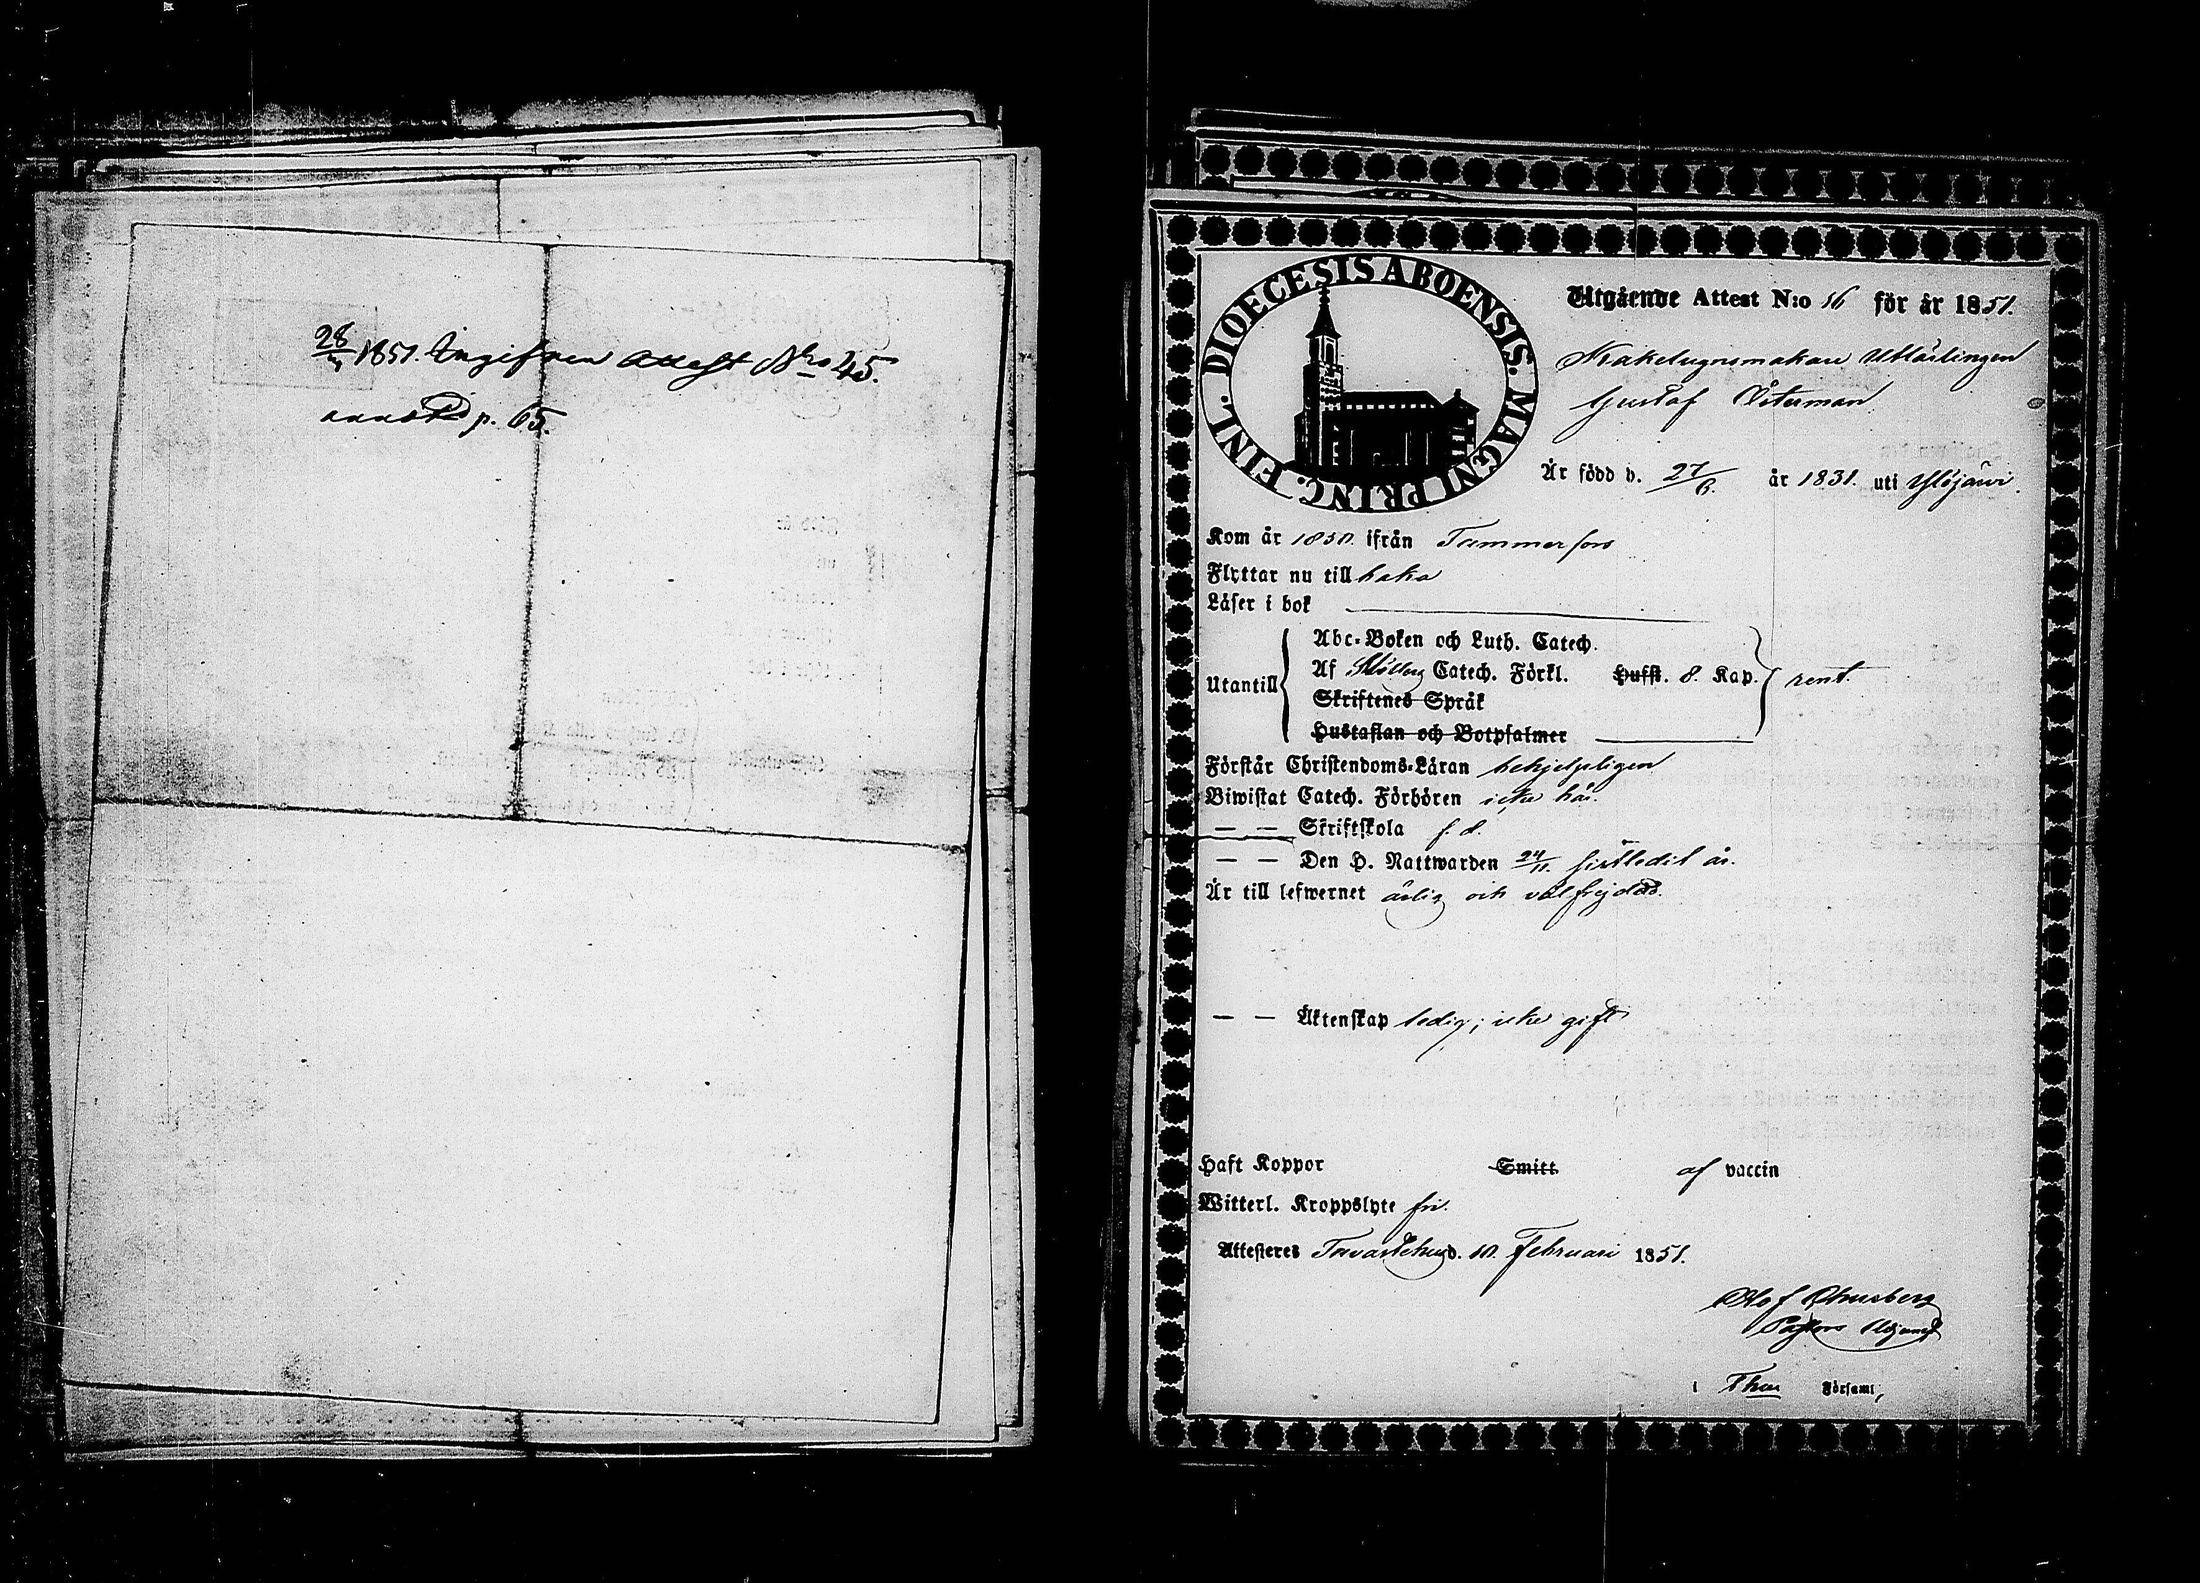 28/4 1851. Ingifven attest Nro 45.
p. 65.
DIOECESIS ABOENSIS. MAGNI PRINC. FINL.
Utgående Attest N:o 16 för år 1851.
Kakelugnsmakare Utlärlingen
Gustaf Österman
Är född d. 27/6. år 1831. uti Ylöjärvi.
Kom år 1850. ifrån Tammerfors
Flyttar nu till baka
Läser i bok
Utantill
Abc-Boken och Luth. Catech.
Af Catech. Förkl. Hufst. 8. Kap. rent.
Skriftenes Språk
Hustaflan och Botpsalmer
Förstår Christendoms-Läran behjelpligen
Biwistat Catech. Förhören icke här.
— — Skriftskola f. d.
— — Den H. Nattwarden 24/11. sistledit år.
Är till lefwernet ärlig och välfrejdad.
— — Äktenskap ledig; icke gift
Haft Koppor Smitt af vaccin
Witterl. Kroppslyte fri.
Attesteres Tavastehus d. 10. Februari 1851.
Olof
Pastors Adjunct
i Förs­aml,